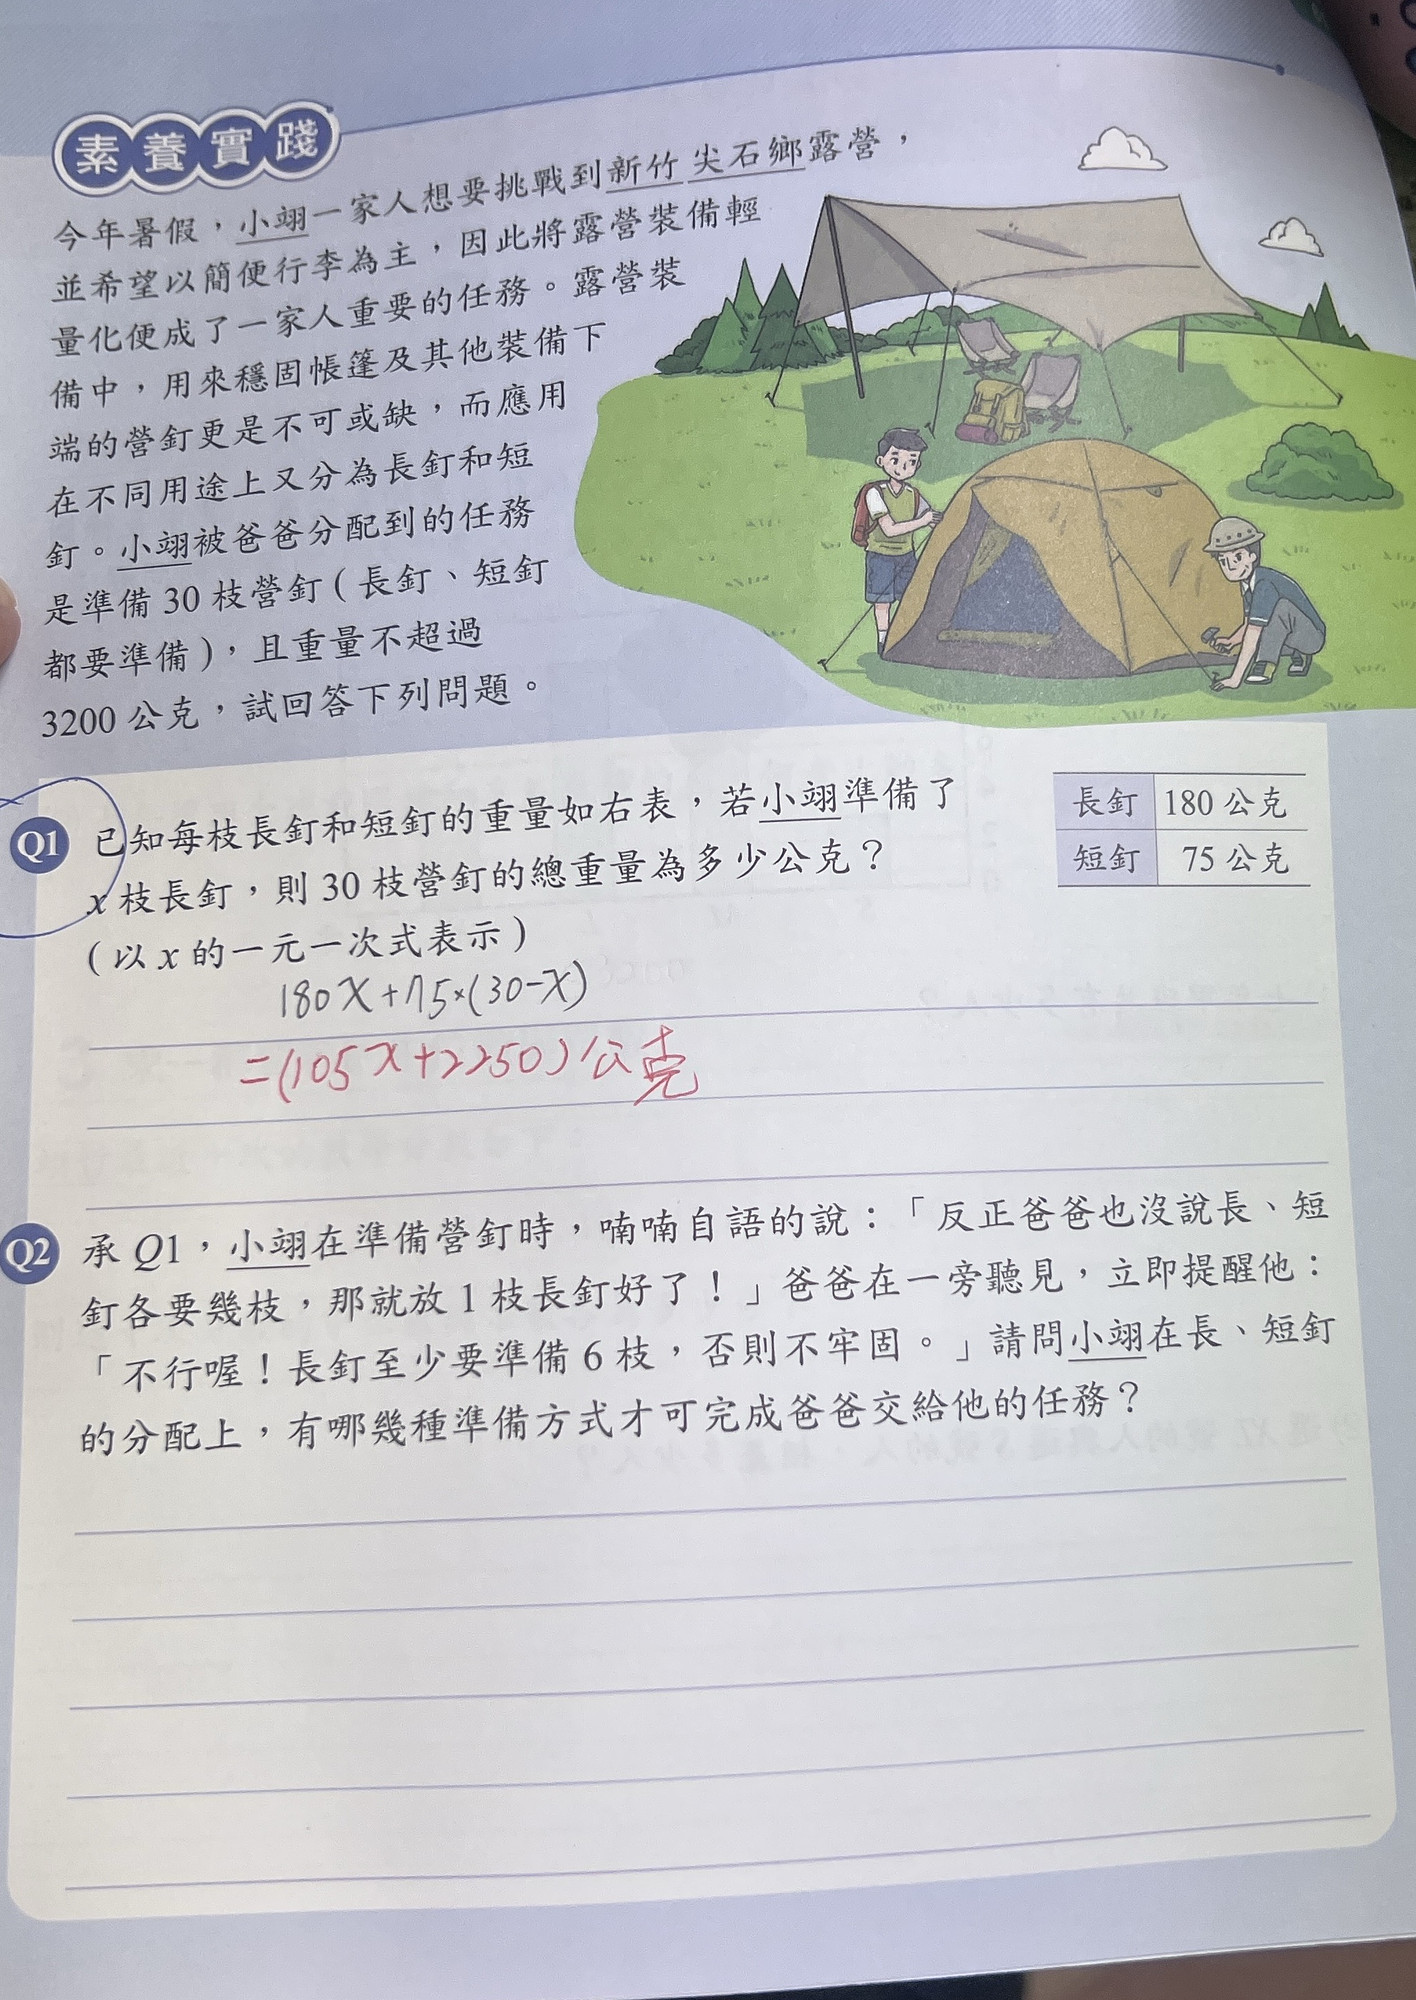 素養實踐
今年暑假，小翊一家人想要挑戰到新竹尖石鄉露營，
並希望以簡便行李為主，因此將露營裝備輕
量化便成了一家人重要的任務。露營裝
備中，用來穩固帳篷及其他裝備下
端的營釘更是不可或缺，而應用
在不同用途上又分為長釘和短
釘。小翊被爸爸分配到的任務
是準備30枝營釘(長釘、短釘
都要準備)，且重量不超過
3200公克，試回答下列問題。
Q1 已知每枝長釘和短釘的重量如右表，若小翊準備了
x枝長釘，則30枝營釘的總重量為多少公克？
(以x的一元一次式表示)
長釘 180公克
短釘 75公克
180x+75×(30-x)
=(105x+2250)公克
Q2 承Q1，小翊在準備營釘時，喃喃自語的說：「反正爸爸也沒說長、短
釘各要幾枝，那就放1枝長釘好了！」爸爸在一旁聽見，立即提醒他：
「不行喔！長釘至少要準備6枝，否則不牢固。」請問小翊在長、短釘
的分配上，有哪幾種準備方式才可完成爸爸交給他的任務？